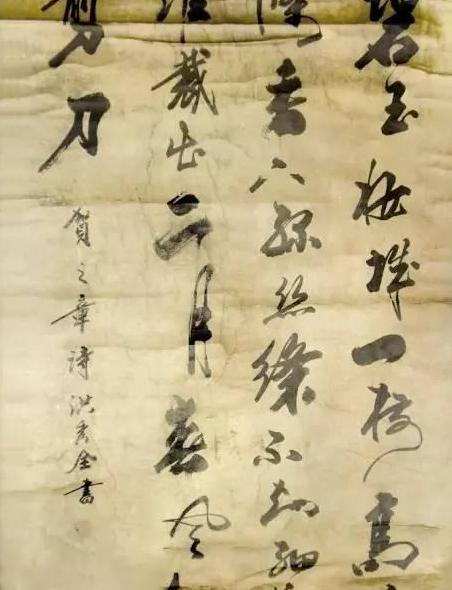 碧玉粧城一樹高
條垂下綠絲絛不知細
誰裁出二月春風
剪刀
賀之章詩洪秀全書